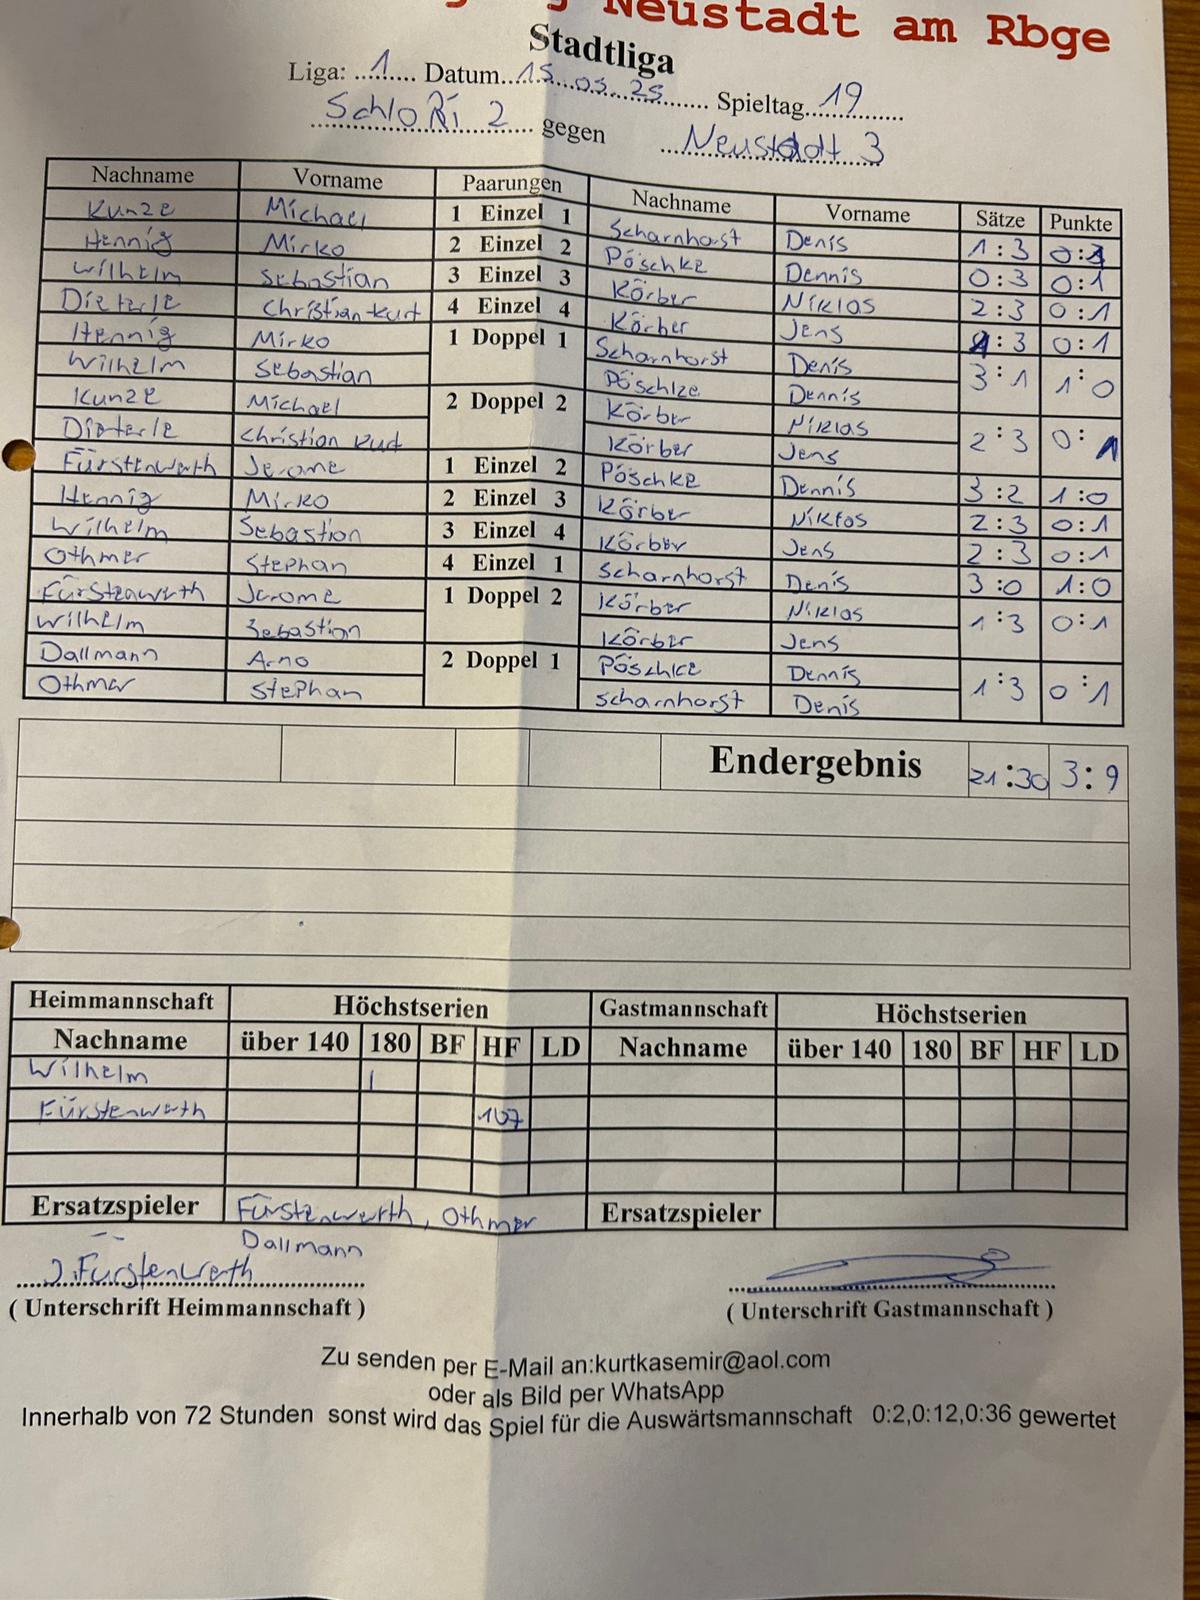 Neustadt am Rbge
Stadtliga
Liga: 1 Datum 15.03.25 Spieltag 19
SchloRi 2 gegen Neustadt 3
Nachname Vorname Paarungen Nachname Vorname Sätze Punkte
Kunze Michael 1 Einzel 1 Scharnhorst Denis 1:3 0:1
Hennig Mirko 2 Einzel 2 Pöschke Dennis 0:3 0:1
Wilhelm Sebastian 3 Einzel 3 Körber Niklas 2:3 0:1
Dieterle Christian-Kurt 4 Einzel 4 Körber Jens :3 0:1
Hennig Mirko 1 Doppel 1 Scharnhorst Denis 3:1 1:0
Wilhelm Sebastian Pöschke Dennis
Kunze Michael 2 Doppel 2 Körber Niklas 2:3 0:1
Dieterle Christian Kurt Körber Jens
Fürstenwerth Jerome 1 Einzel 2 Pöschke Dennis 3:2 1:0
Hennig Mirko 2 Einzel 3 Körber Niklas 2:3 0:1
Wilhelm Sebastian 3 Einzel 4 Körber Jens 2:3 0:1
Othmer Stephan 4 Einzel 1 Scharnhorst Denis 3:0 1:0
Fürstenwerth Jerome 1 Doppel 2 Körber Niklas 1:3 0:1
Wilhelm Sebastian Körber Jens
Dallmann Arno 2 Doppel 1 Pöschke Dennis 1:3 0:1
Othmer Stephan Scharnhorst Denis
Endergebnis 21:30 3:9
Heimmannschaft Höchstserien Gastmannschaft Höchstserien
Nachname über 140 180 BF HF LD Nachname über 140 180 BF HF LD
Wilhelm |
Fürstenwerth 107
Ersatzspieler Fürstenwerth, Othmer Ersatzspieler
Dallmann
J. Fürstenwerth
( Unterschrift Heimmannschaft ) ( Unterschrift Gastmannschaft )
Zu senden per E-Mail an:kurtkasemir@aol.com
oder als Bild per WhatsApp
Innerhalb von 72 Stunden sonst wird das Spiel für die Auswärtsmannschaft 0:2,0:12,0:36 gewertet